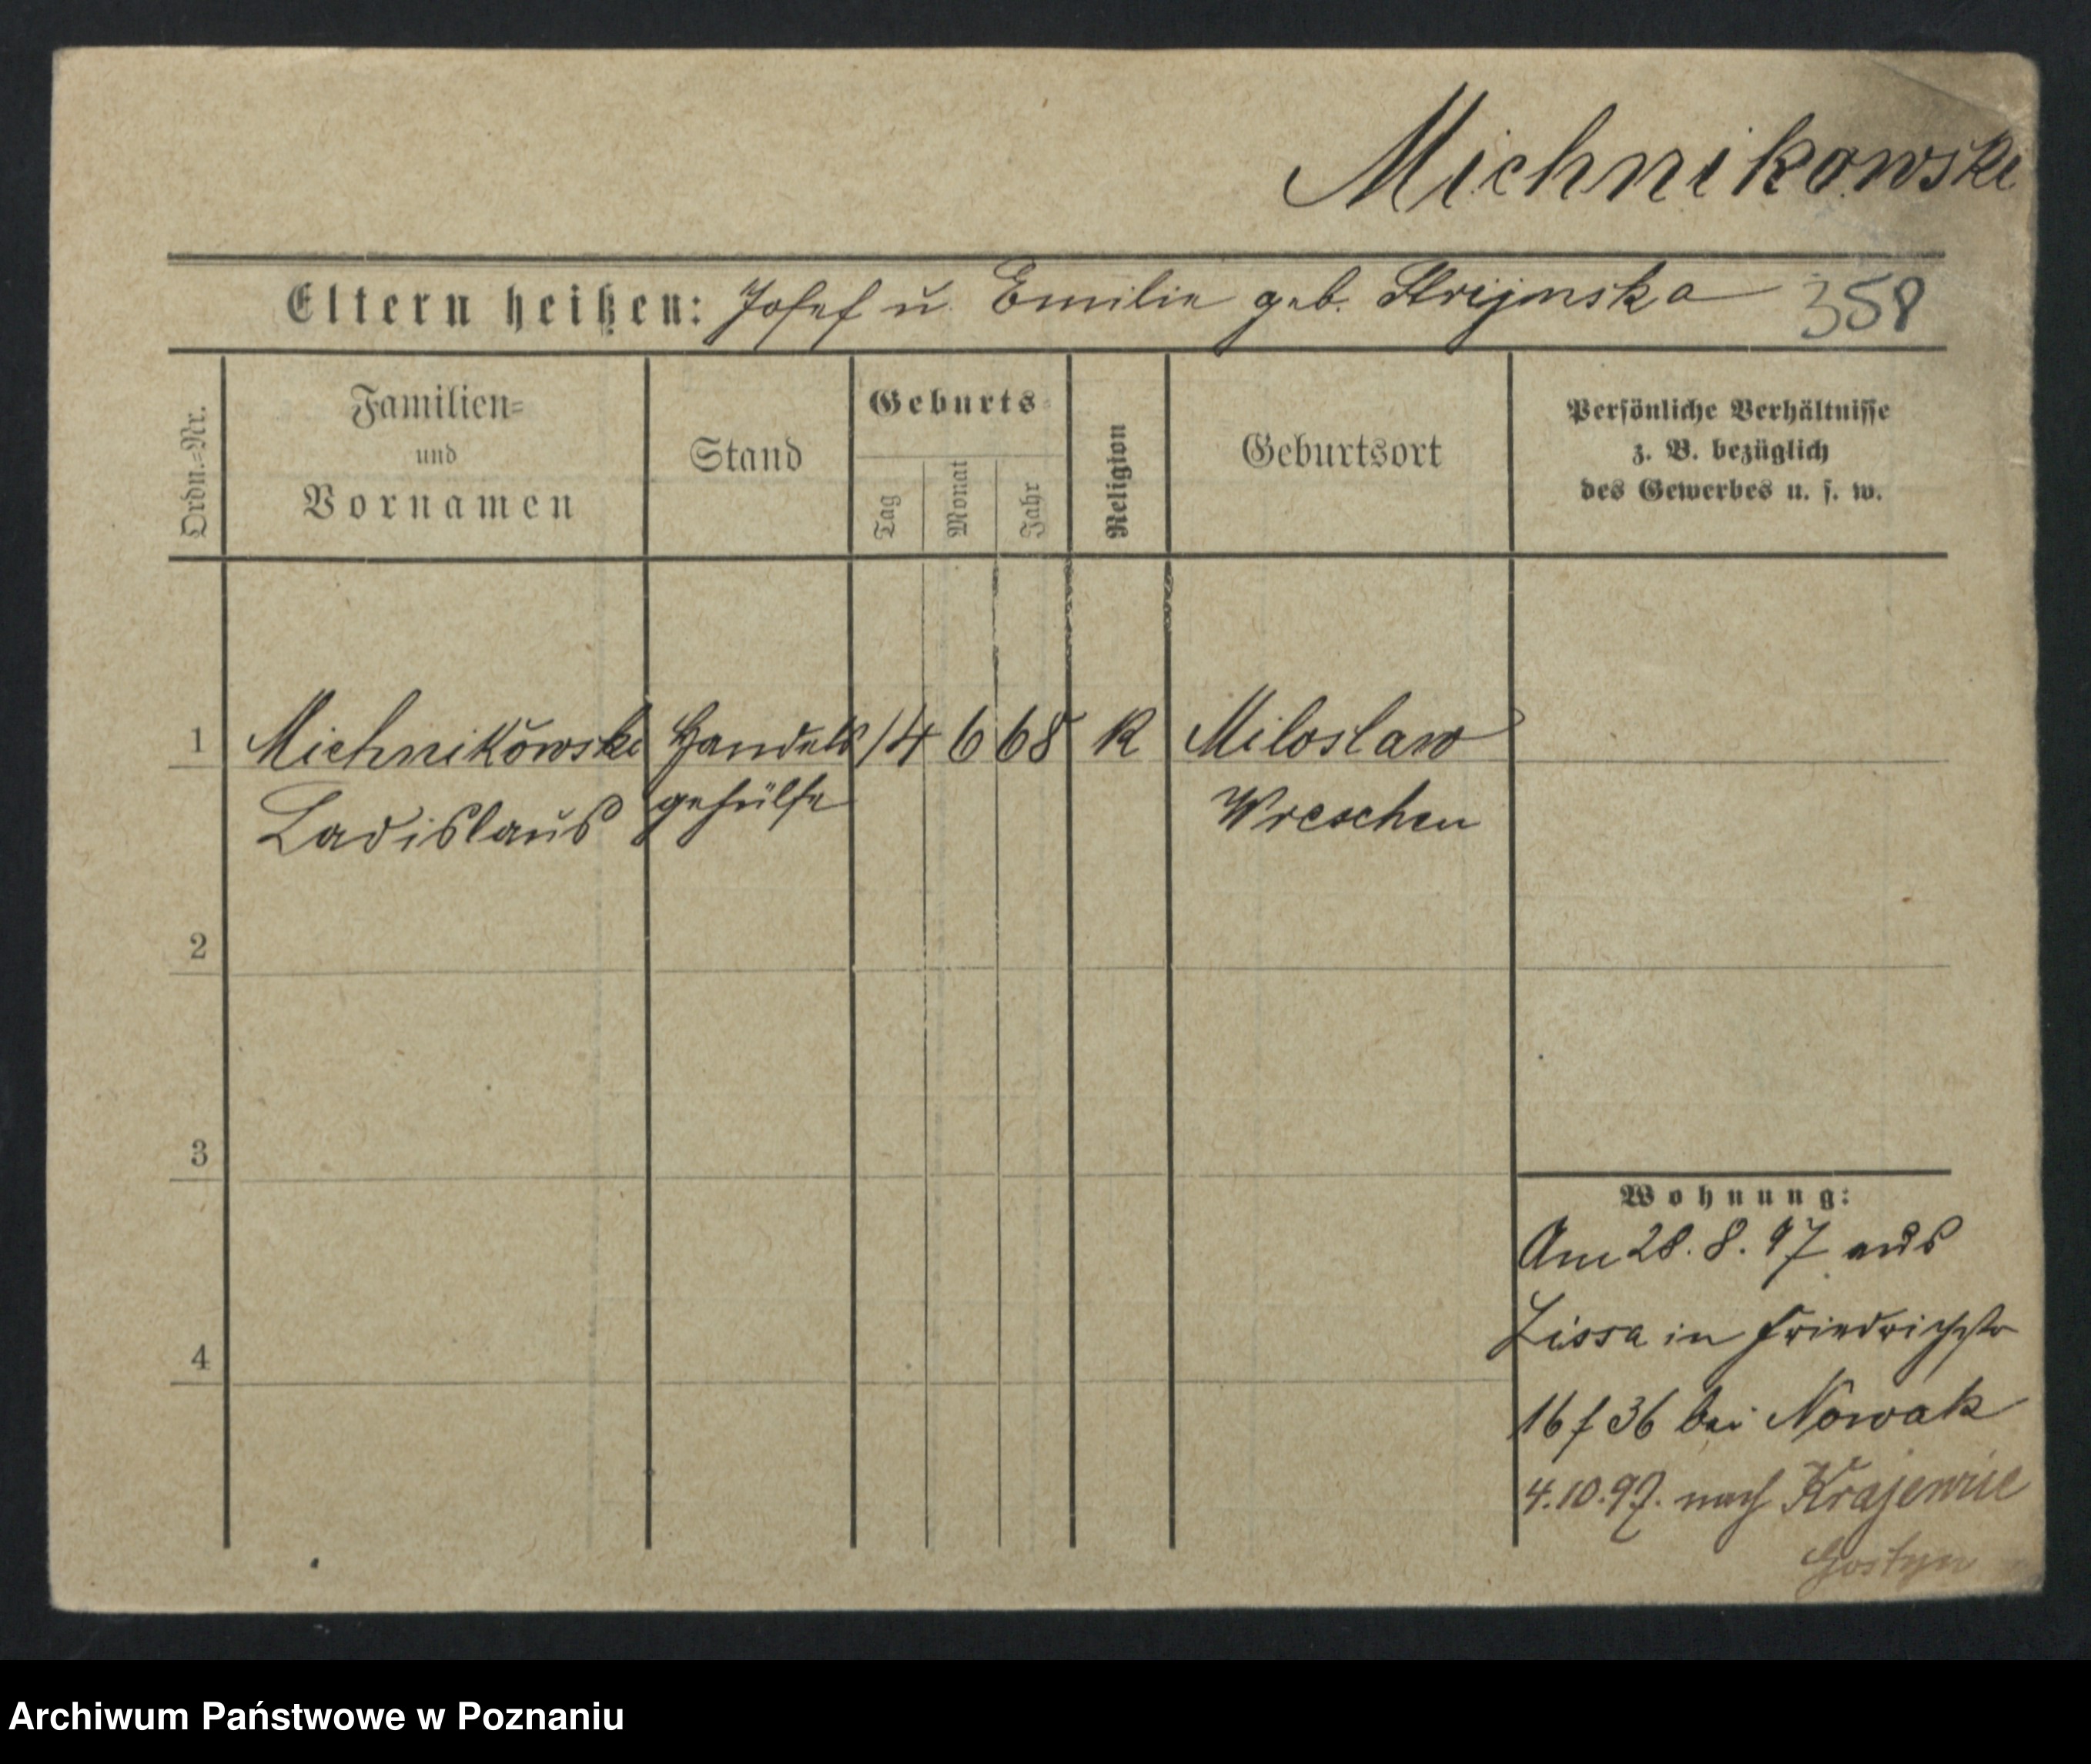 Michnikowski
Eltern heißen: Josef u. Emilie geb. 358
Ordn.=Nr.
Familien=
und
Vornamen
Stand
Geburts=
Tag
Monat
Jahr
Religion
Geburtsort
Persönliche Verhältnisse
z. B. bezüglich
des Gewerbes u. s. w.
1 Michnikowski Handels 14 6 68 K Miloslaw
Ladislaus gehülfe Wreschen
2
3
4
Wohnung:
Am 28. 8. 97 aus
Lissa in Friedrichstr
16 f 36 bei Nowak
4.10.97. nach Krajewice
Gostyn
Archiwum Państwowe w Poznaniu